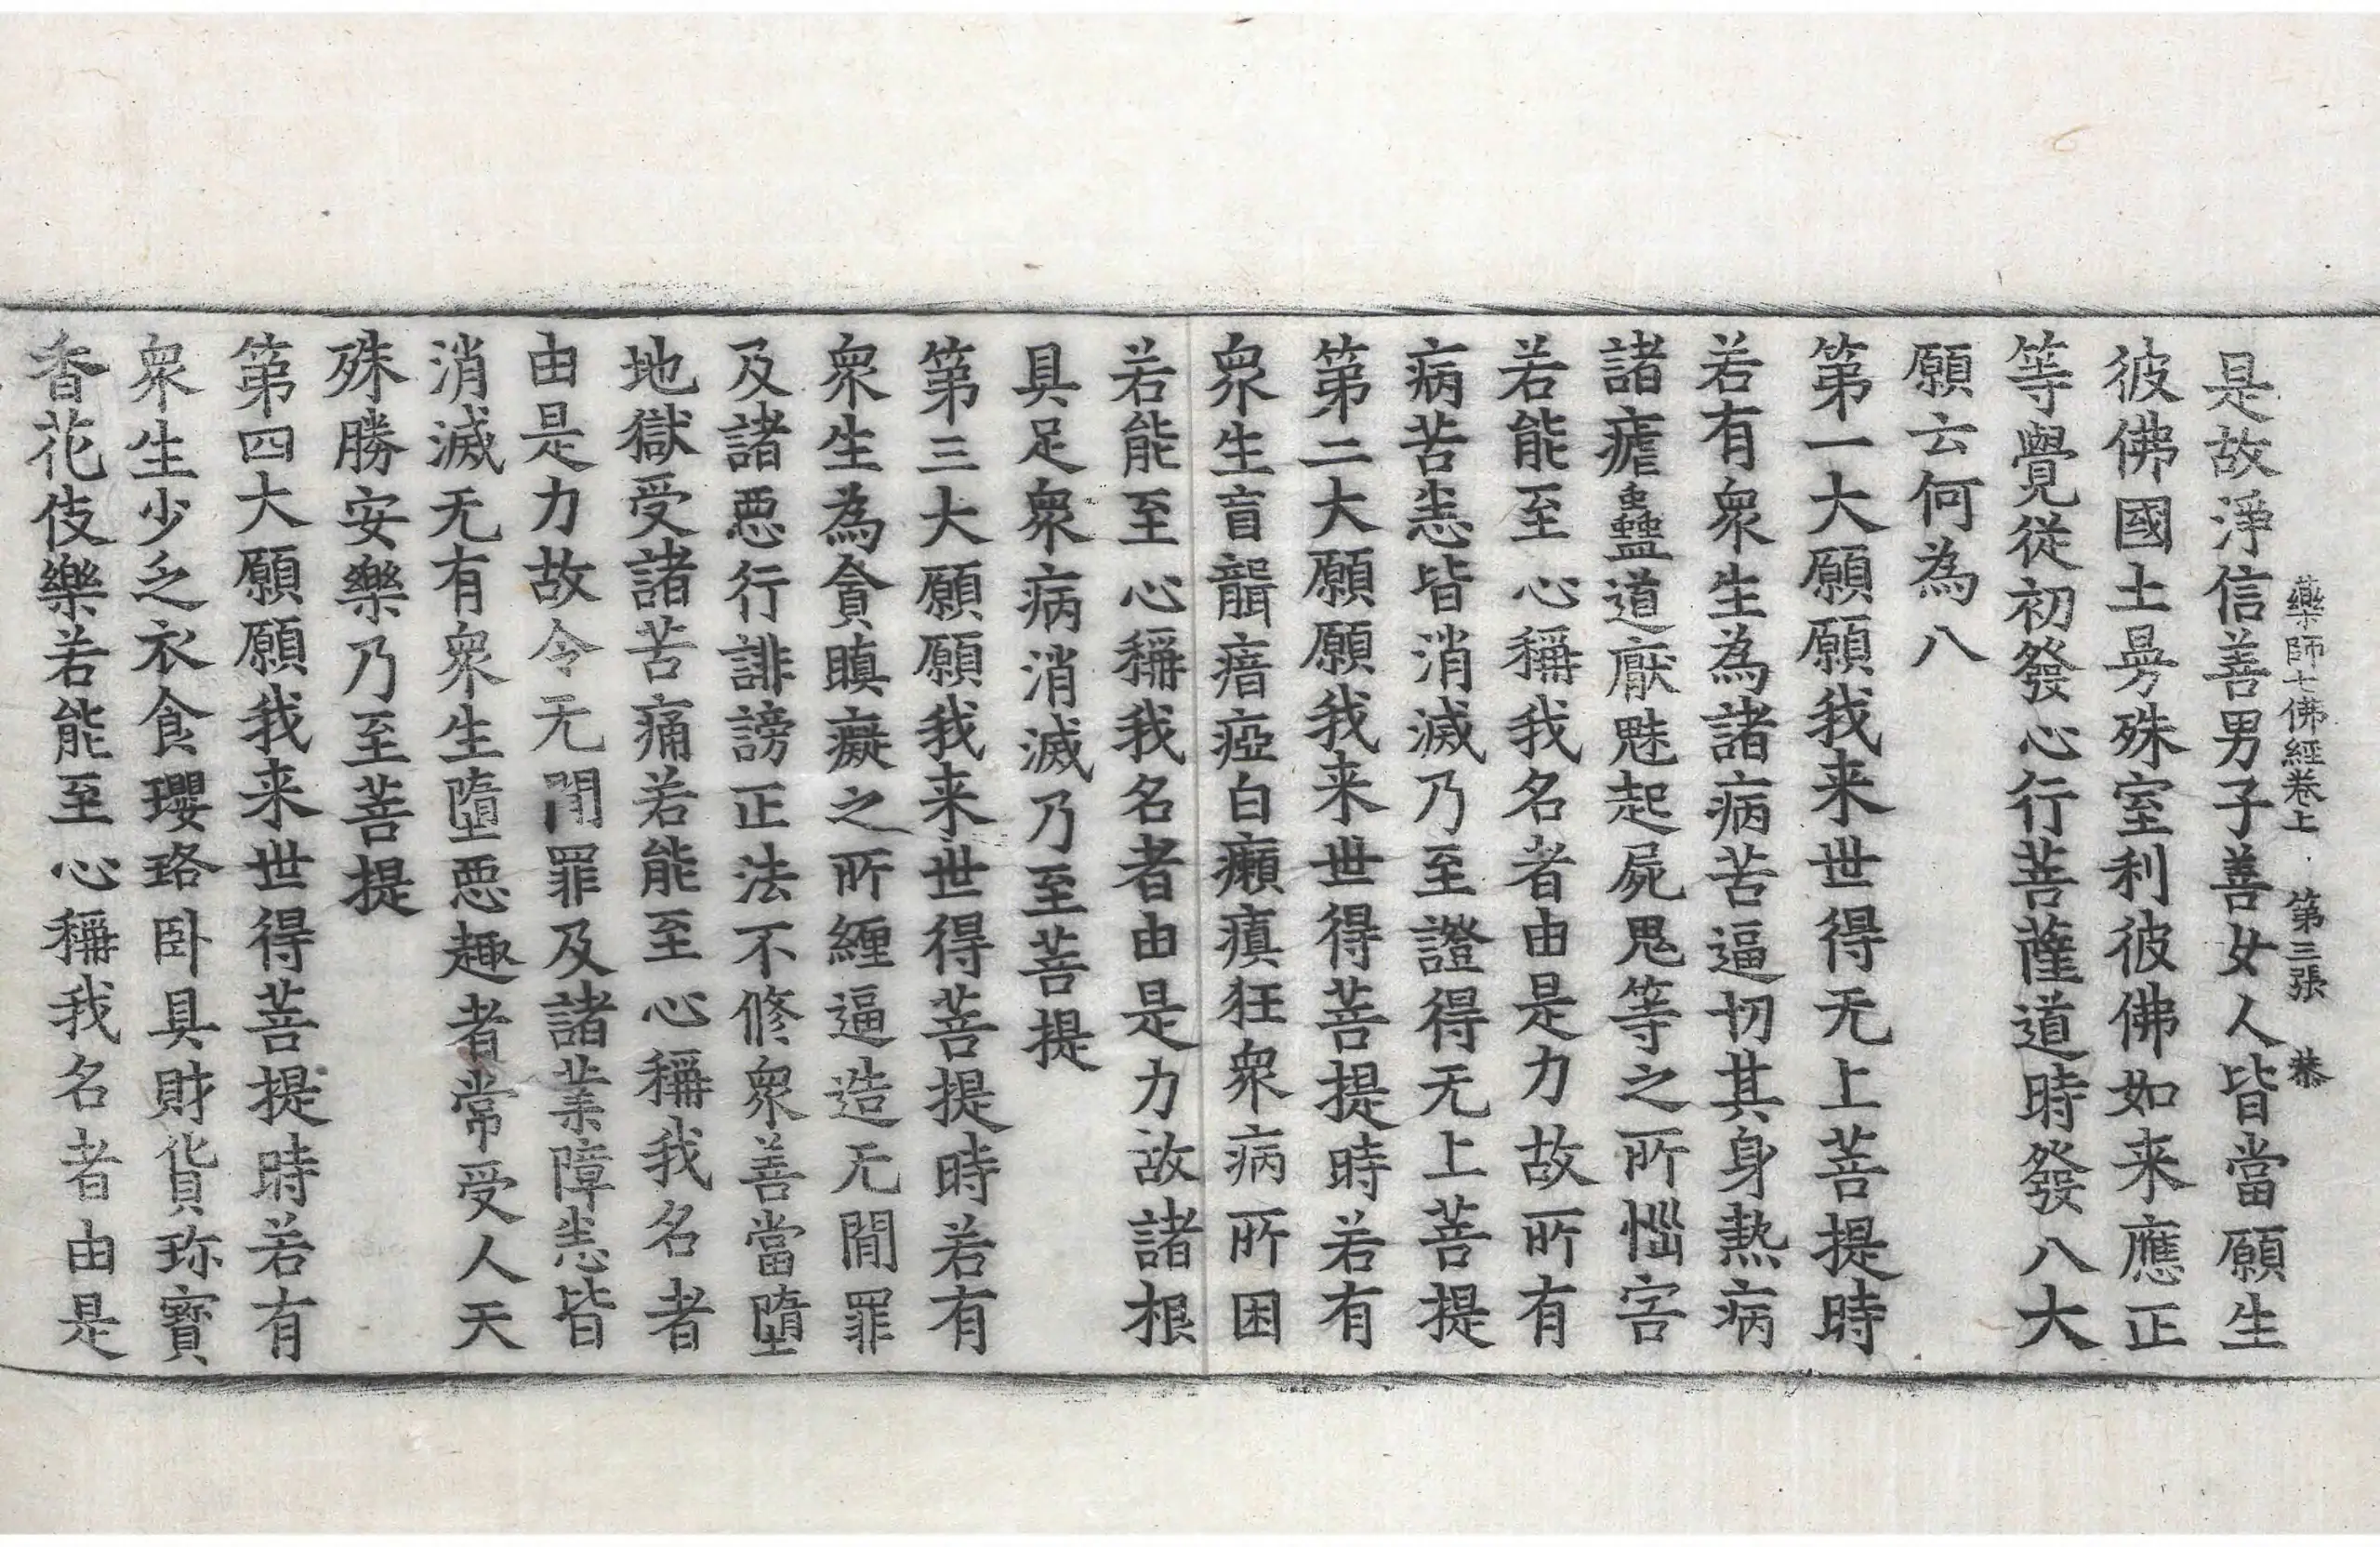 藥師七佛經卷上 第三張 恭
是故淨信善男子善女人皆當願生
彼佛國土㝵殊室利彼佛如来應正
等覺從初發心行菩薩道時發八大
願云何為八
第一大願願我来世得无上菩提時
若有衆生為諸病苦逼切其身熱病
諸瘧蠱道厭魅起屍鬼等之所惱害
若能至心稱我名者由是力故所有
病苦悉皆消滅乃至證得无上菩提
第二大願願我来世得菩提時若有
衆生盲聾瘖瘂白癩瘨狂衆病所困
若能至心稱我名者由是力故諸根
具足衆病消滅乃至菩提
第三大願願我来世得菩提時若有
衆生為貪瞋癡之所纏逼造无間罪
及諸惡行誹謗正法不修衆善當墮
地獄受諸苦痛若能至心稱我名者
由是力故令无間罪及諸業障悉皆
消滅无有衆生墮惡趣者常受人天
殊勝安樂乃至菩提
第四大願願我来世得菩提時若有
衆生少乏衣食瓔珞卧具財貨珎寳
香花伎樂若能至心稱我名者由是